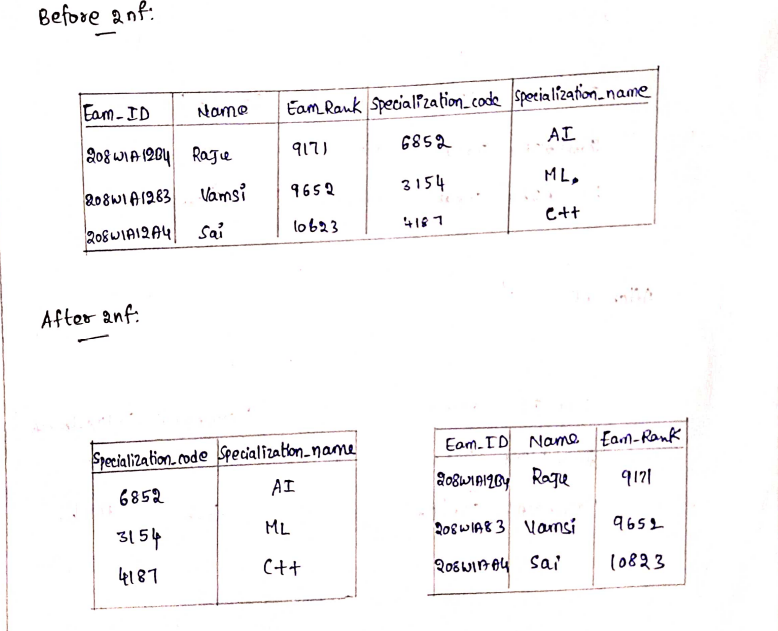 Before 2nf:
Eam-ID Name Eam_Rank Specialization_code Specialization_name
208W1A12B4 Raju 9171 6852 AI
208W1A1283 Vamsi 9652 3154 ML
208W1A12A4 Sai 10623 4187 C++
After 2nf:
Specialization_code Specialization_name
6852 AI
3154 ML
4187 C++
Eam-ID Name Eam-Rank
208W1A12B4 Raju 9171
208W1A83 Vamsi 9652
Sai 10823